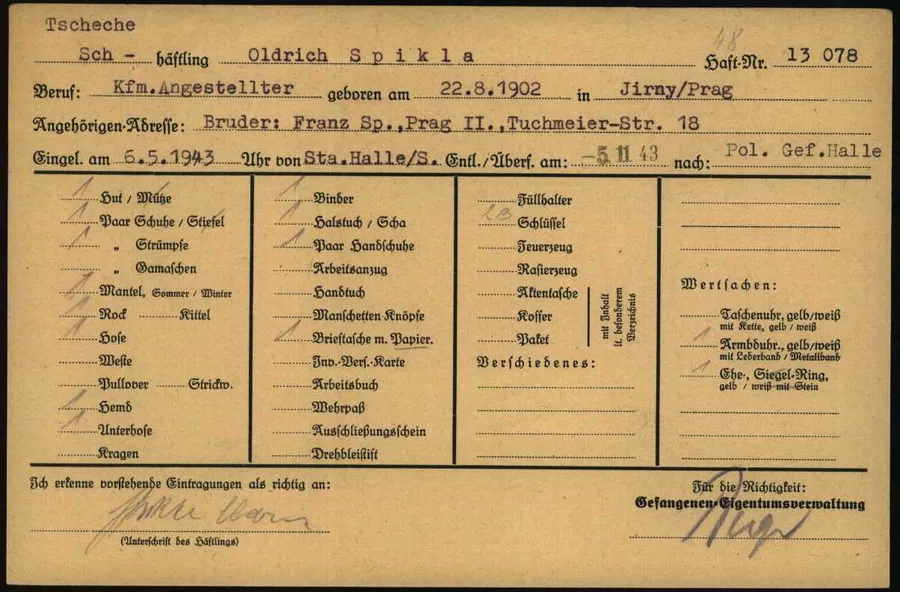 Tscheche
Sch- häftling Oldrich Spikla Haft-Nr. 13 078
48
Beruf: Kfm.Angestellter geboren am 22.8.1902 in Jirny/Prag
Angehörigen-Adresse: Bruder: Franz Sp.,Prag II.,Tuchmeier-Str. 18
Eingel. am 6.5.1943 Uhr von Sta.Halle/S. Entl./Überf. am: -5.11.43 nach: Pol. Gef.Halle
1 Hut / Mütze
1 Paar Schuhe / Stiefel
1 „ Strümpfe
„ Gamaschen
1 Mantel, Sommer / Winter
1 Rock Kittel
1 Hose
Weste
Pullover Strickw.
1 Hemd
1 Unterhose
Kragen
1 Binder
1 Halstuch / Scha
1 Paar Handschuhe
Arbeitsanzug
Handtuch
Manschetten-Knöpfe
1 Brieftasche m. Papier.
Inv.-Vers.-Karte
Arbeitsbuch
Wehrpaß
Ausschließungsschein
Drehbleistift
Füllhalter
23 Schlüssel
Feuerzeug
Rasierzeug
Aktentasche
Koffer
Paket
mit Inhalt
lt. besonderem
Verzeichnis
Verschiedenes:
Wertsachen:
Taschenuhr, gelb/weiß
mit Kette, gelb / weiß
1 Armbduhr., gelb/weiß
mit Lederband / Metallband
1 Ehe-, Siegel-Ring,
gelb / weiß mit Stein
Ich erkenne vorstehende Eintragungen als richtig an:
(Unterschrift des Häftlings)
Für die Richtigkeit:
Gefangenen-Eigentumsverwaltung